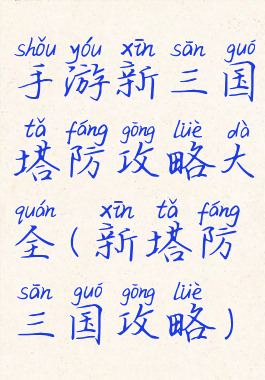 shǒu yóu xīn sān guó
手游新三国
tǎ fáng gōng lüè dà
塔防攻略大
quán xīn tǎ fáng
全(新塔防
sān guó gōng lüè
三国攻略)